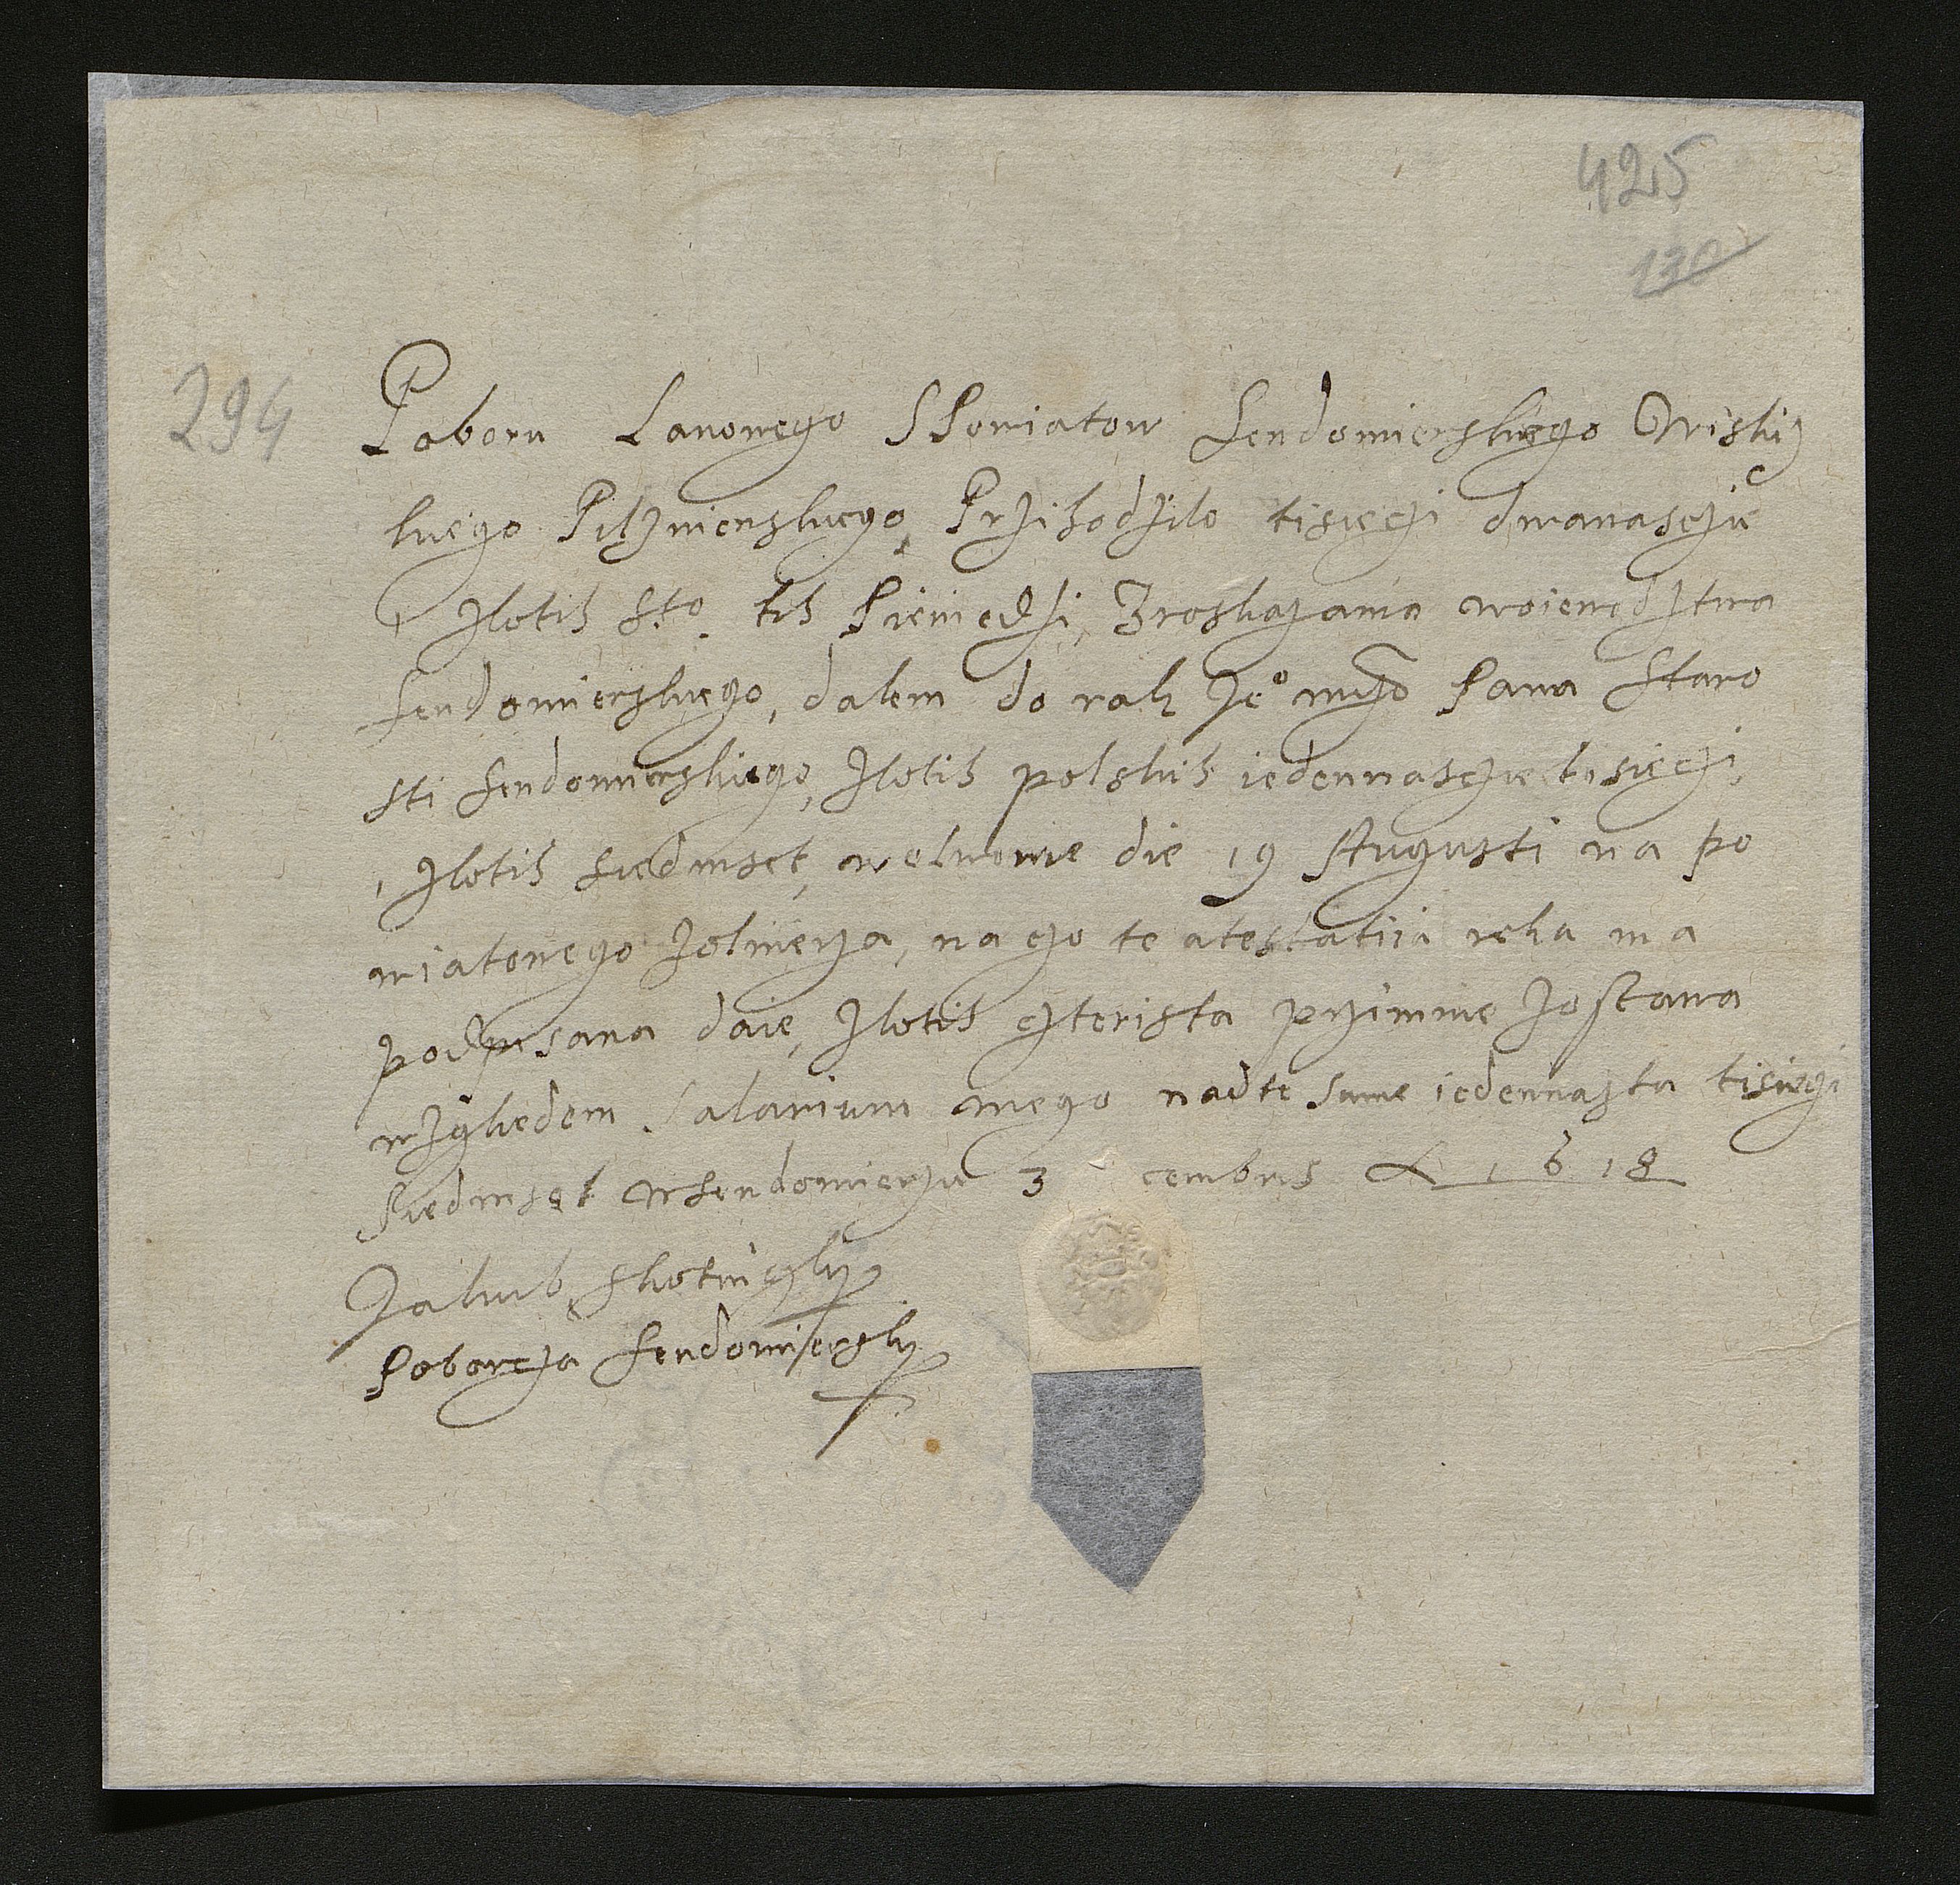 425
130
294
Poboru Lanowego SPowiatow Sendomierskiego Wislic
kiego Pilznienskiego, Przihodzilo tisięczi dwanascie
, zlotih sto. tih Pieniędzi, Zroskazania woiewodztwa
sendomierskiego, dalem do rąk Je° mczi Pana Staro
sti sendomierskiego, zlotih polskih iedennascie tisięczi,
, zlotih siedmset, welwowie die 19 Augusti na po
wiatowego zolnierza, na czo te atestatiia ręka ma
podpisana daie, zlotih czterista przimnie zostawa
wzgliedem Salarium mego nadte sume iedennasta tisięczi
siedmset wsendomierzu 3 cembris A 1618
Jakub Skotniczky
Poborcza sendomiersky